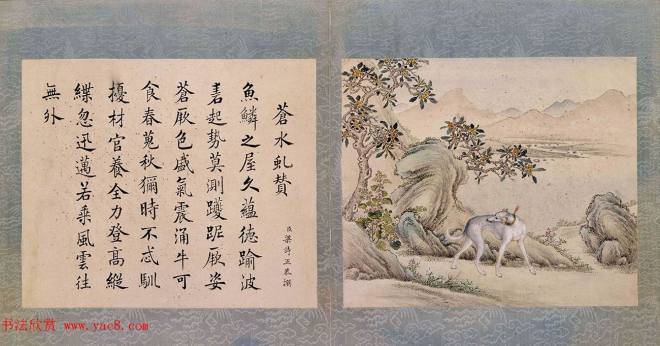 蒼水虬贊
臣梁詩正恭撰
魚鱗之屋久蘊德踰波
耆起勢莫測躩跜厥姿
蒼厥色盛氣震涌牛可
食春蒐秋獮時不忒馴
擾材官養全力登高縱
緤忽迅邁若乘風雲往
無外
书法欣赏 www.yac8.com